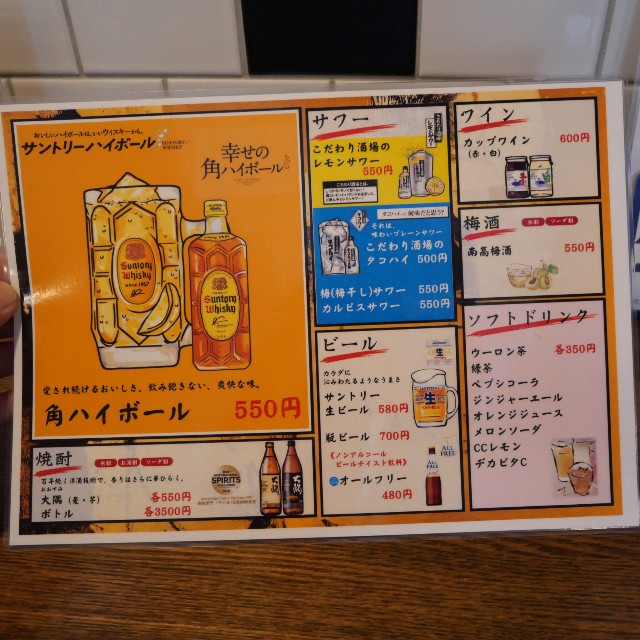 おいしいハイボールは、いいウイスキーから。
サントリーハイボール
SUNTORY
WHISKY
幸せの
角ハイボール
Suntory
Whisky
SINCE 1937
Suntory
Whisky
愛され続けるおいしさ。飲み飽きない、爽快な味。
角ハイボール 550円
焼酎
水割 お湯割 ソーダ割
百年焼く洋酒技術で、香りはさらに華ひらく。
おおすみ
大隅(麦・芋) 各550円
ボトル 各3500円
SPIRITS
大隅
サワー
こだわり酒場の
レモンサワー
550円
タコハイって何味だと思う?
それは、
味わいプレーンサワー
こだわり酒場の
タコハイ 500円
梅(梅干し)サワー 550円
カルピスサワー 550円
ビール
カラダに
沁みわたるようなうまさ
サントリー
生ビール 580円
生
瓶ビール 700円
《ノンアルコール
ビールテイスト飲料》
オールフリー
480円
ALL
FREE
ワイン
カップワイン 600円
(赤・白)
梅酒
水割 ソーダ割
南高梅酒 550円
ソフトドリンク
ウーロン茶 各350円
緑茶
ペプシコーラ
ジンジャーエール
オレンジジュース
メロンソーダ
CCレモン
デカビタC